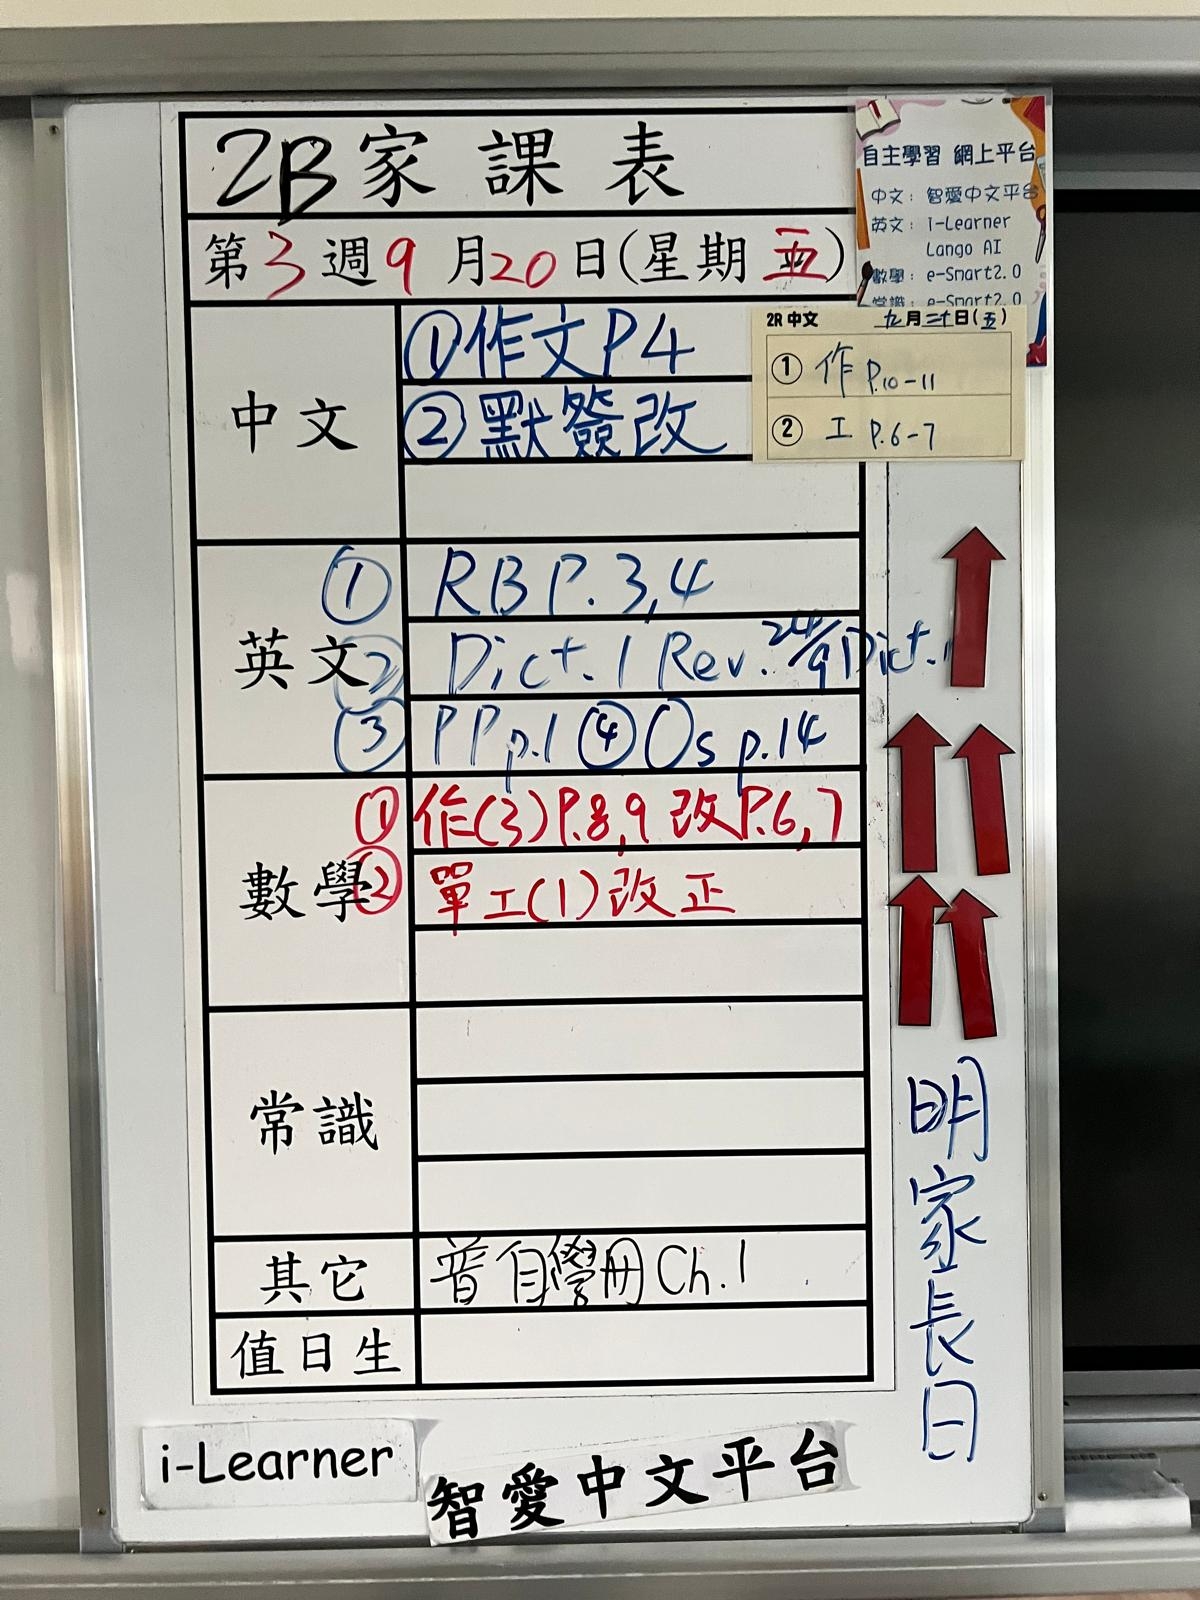 2B家課表
第3週9月20日(星期五)
自主學習 網上平台
中文: 智愛中文平台
英文: i-Learner
Lango AI
數學: e-Smart2.0
常識: e-Smart2.0
中文
①作文P4
②默簽改
2R中文 九月二十日(五)
① 作 P.10-11
② 工 P.6-7
英文
① RB P.3,4
② Dict.1 Rev. 24/9 Dict.
③ PP p.1 ④ Os p.14
數學
① 作(3)P.8,9 改P.6,7
② 單工(1)改正
常識
其它
普自學冊Ch.1
值日生
明家長日
i-Learner
智愛中文平台